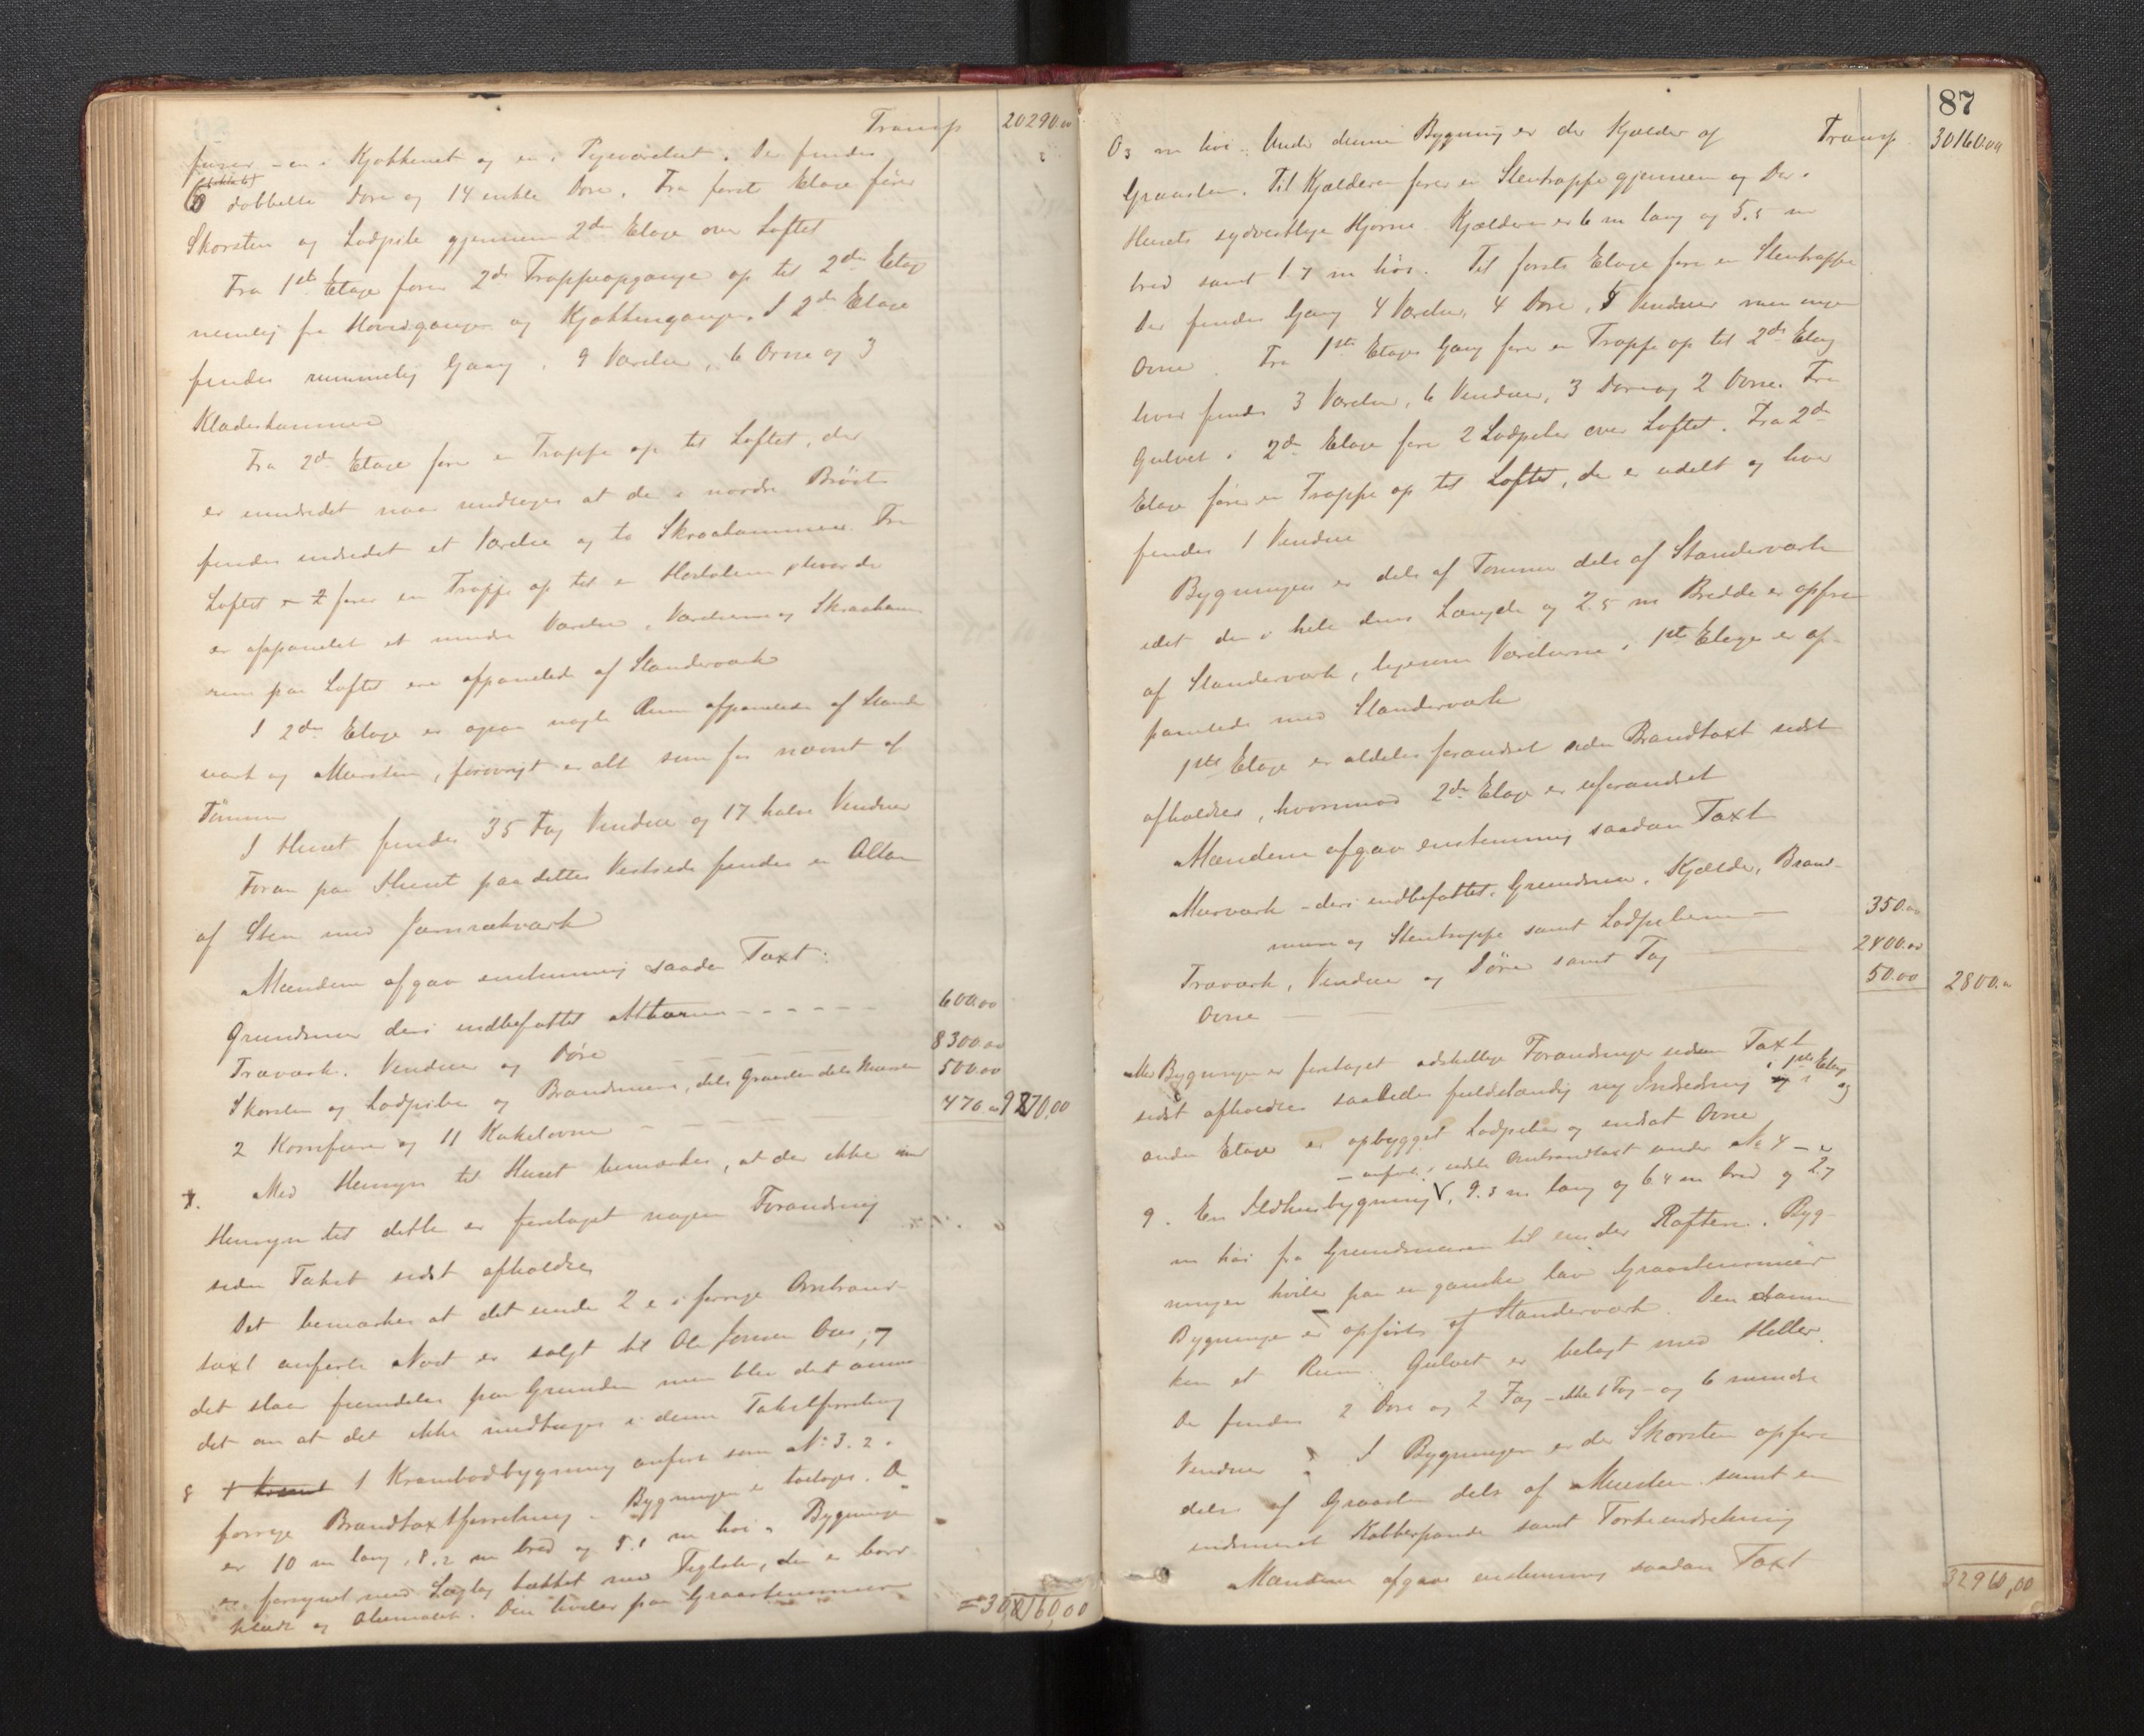 Transp 20290.00
furer - en i Kjøkkenet og en i Pigeværelset. Der findes
6 dobbelte Døre og 14 enkle Døre. Fra første Etage fører
Skorsten og Lodpibe gjennem 2den Etage over Loftet
Fra 1ste Etage fører 2de Trappeopgange op til 2den Etage
nemlig fra Hovedgangen og Kjøkkengangen. I 2den Etage
findes rummelig Gang, 9 Værelser, 6 Ovne og 3
Klædeskammere
Fra 2den Etage fører en Trappe op til Loftet, der
er uindredet naar undtages at der i nordre Brøst
findes indredet et Værelse og to Skraakammere. Fra
Loftet fører en Trappe op til en
er afpanelet et mindre Værelse, Værelserne og Skraakam-
rene paa Loftet ere afpanelede af Standerværk
I 2den Etage er ogsaa nogle Rum afpanelede af Stander
værk og Mursten, forøvrigt er alt som før nævnt af
Tømmer
I Huset findes 35 Fag Vinduer og 17 halve Vinduer
Foran paa Huset paa dettes Vestside findes en Altan
af Sten med Jernrækværk
Mændene afgav enstemmig saadan Taxt:
Grundmur deri indbefattet Altanen - - - - - 600.00
Træværk, Vinduer og Døre 8300.00
Skorsten og Lodpiber og Brandmure, dels Graasten dels Mursten 500.00
2 Komfurer og 11 Kakelovne - 470.00 9870,00
Med Hensyn til Huset bemærkes, at der ikke med
Hensyn til dette er foretaget nogen Forandring
siden Takst sidst afholdtes
Det bemærkes at det under 2 e i forrige Ombrand-
taxt anførte Nøst er solgt til Ole Jonsen Aas,
det staar fremdeles paa Grunden men blev det anm
det om at det ikke medtages i denne Takstforretning
8 1 Krambodbygning anført som No 3.2 i
forrige Brandtaxtforretning. Bygningen er toetages. Den
er 10 m lang, 8.2 m bred og 5.1 m høi. Bygningen
er forsynet med Lægtag tækket med Taglsten, den er bord-
klædt og oliemalet. Den hviler paa Graastensmur
= 30,160,00
87
0,3 m høi. Under denne Bygning er der Kjælder af Transp 30160.00
Graasten. Til Kjælderen fører en Stentrappe gjennem og Dør i
Husets sydvestlige Hjørne. Kjælderen er 6 m lang og 5.5 m
bred samt 1.7 m høi. Til første Etage fører en Stentrappe
Der findes Gang 4 Værelser, 4 Døre, 5 Vinduer men ingen
Ovne. Fra 1ste Etages Gang fører en Trappe op til 2den Etage
hvor findes 3 Værelser, 6 Vinduer, 3 Døre og 2 Ovne. Fra
Gulvet i 2den Etage fører 2 Lodpiber over Loftet. Fra 2den
Etage fører en Trappe op til Loftet, der er udelt og hvor
findes 1 Vindue
Bygningen er dels af Tømmer dels af Standerværk
idet den i hele dens Længde og 2.5 m Bredde er opført
af Standerværk, ligesom Værelserne i 1ste Etage er af-
panelede med Standerværk
1ste Etage er aldeles forandret siden Brandtaxt sidst
afholdtes, hvorimod 2den Etage er uforandret
Mændene afgav enstemmig saadan Taxt
Murværk - deri indbefattet Grundmur, Kjælder, Brand-
mure og Stentrappe samt Lodpiberne - 350.00
Træværk, Vinduer og Døre samt Tag 2400.00
Ovne 50.00 2800.00
Med Bygningen er foretaget adskillige Forandringer siden Taxt
sidst afholdtes saaledes fuldstændig ny Indredning i 1ste Etage og i
anden Etage er opbygget Lodpiber og indsat Ovne
- anført i sidste Ombrandtaxt under No 4 -
9. En Ildhusbygning, 9.3 m lang og 6.4 m bred og 2.7
m høi fra Grundmuren til under Raften. Byg-
ningen hviler paa en ganske lav Graastensmur
Bygningen er opført af Standerværk. Den danner
kun et Rum. Gulvet er belagt med Heller.
Der findes 2 Døre og 2 Fag - ikke 1 Fag - og 6 mindre
Vinduer. I Bygningen er der Skorsten opført
dels af Graasten dels af Mursten samt en
indmuret Kobberpande samt Tørkeindretning
Mændene afgav enstemmig saadan Taxt
32960,00